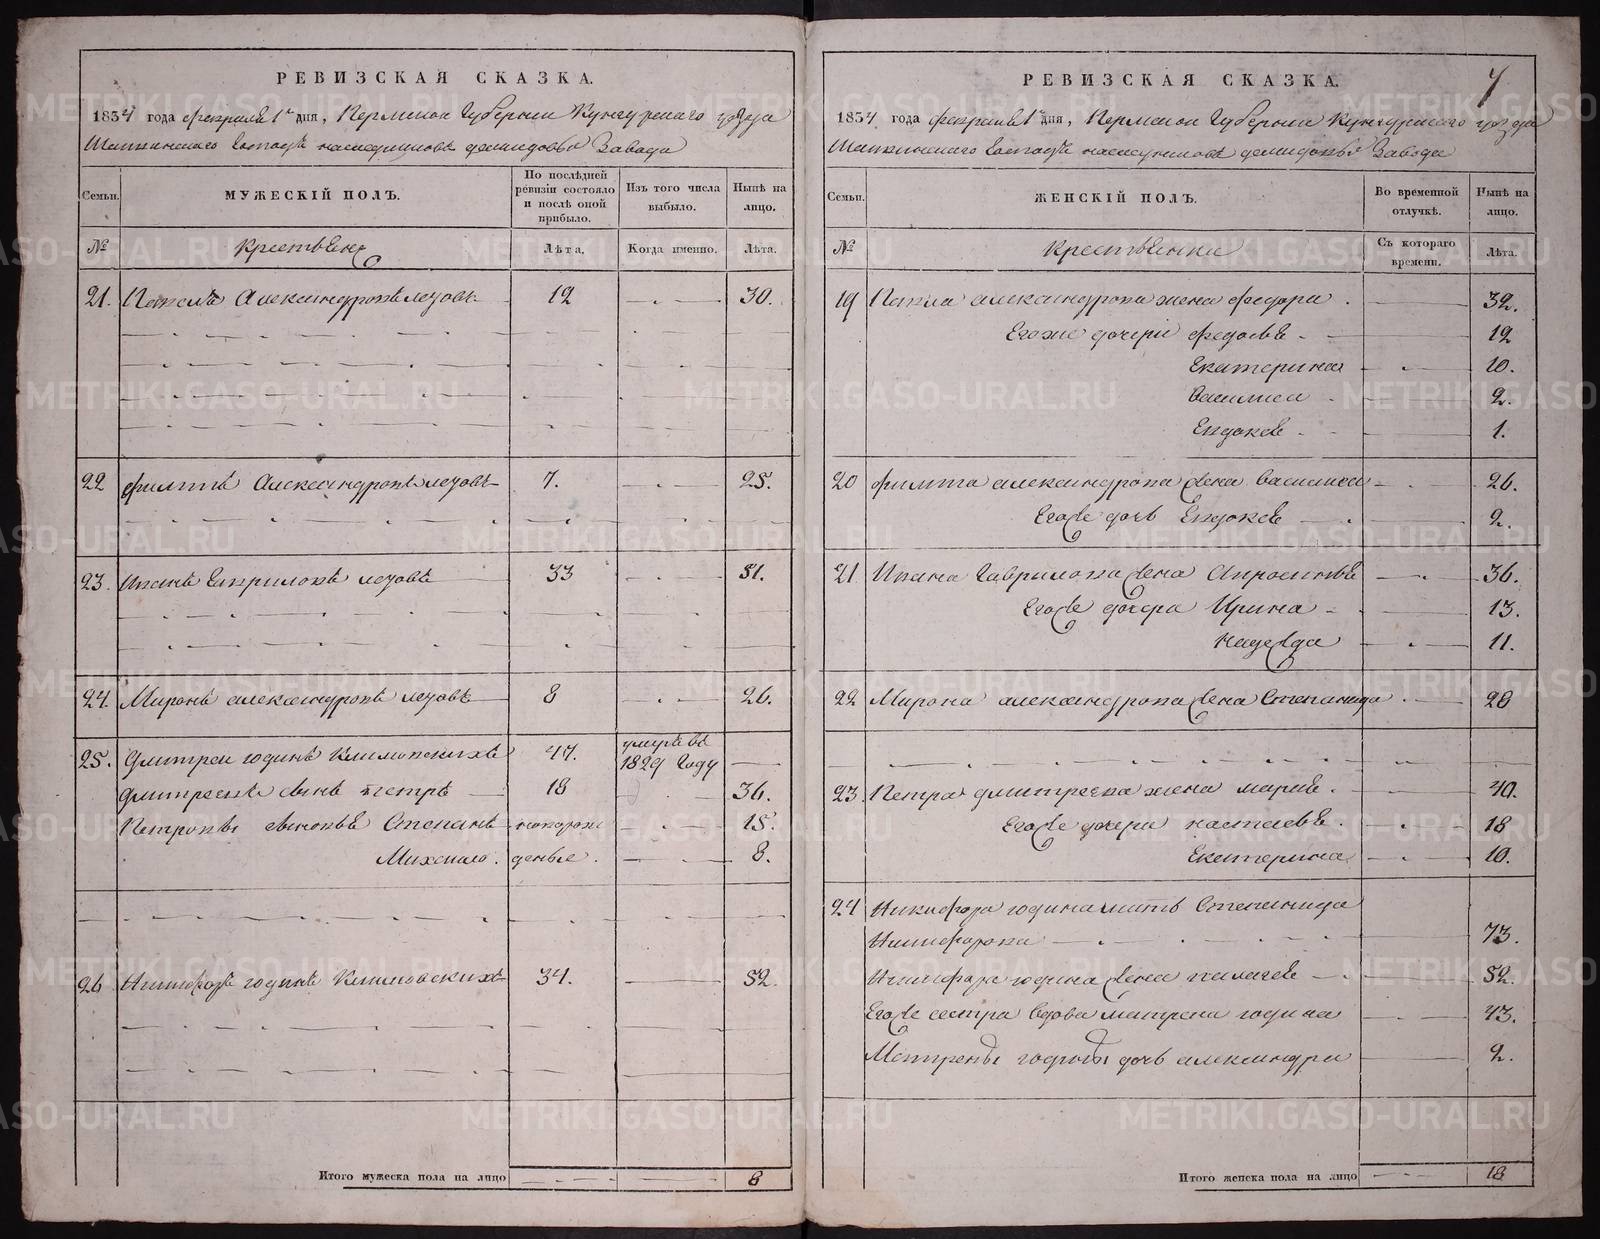 РЕВИЗСКАЯ СКАЗКА.
1834 года февраля 1го дня, Пермской Губернии Кунгурского уезда
заводчиковъ Демидовыхъ Завода
Семьи.
МУЖЕСКІЙ ПОЛЪ.
По послѣдней ревизіи состояло и послѣ оной прибыло.
Изъ того числа выбыло.
Нынѣ на лицо.
№
Крестьяне
Лѣта.
Когда именно.
Лѣта.
21. Павелъ Александровъ 12 30.
22 Филипъ Александровъ 7. 25.
23. Иванъ Гавриловъ 33 51.
24. Миронъ Александровъ 8 26.
25. Дмитреи Родинъ Климовскихъ 47. умре въ 1829 Году
Дмитреевъ сынъ Петръ 18 36.
Петровы сыновьѣ Степанъ новорож 15.
Михаило. деные. 8.
26 Никифоръ Родинъ Климовскихъ 34. 52.
Итого мужеска пола на лицо 8
4
РЕВИЗСКАЯ СКАЗКА.
1834 года февраля 1го дня, Пермской Губернии Кунгурского уезда
Демидовыхъ Завода
Семьи.
ЖЕНСКІЙ ПОЛЪ.
Во временной отлучкѣ.
Нынѣ на лицо.
№
Крестьянки
Съ котораго времени.
Лѣта.
19 Павла Александрова жена Федора 32.
Егоже дочери Федосья 12
Екатерина 10.
Василиса 2.
Евдокея 1.
20 Филипа Александрова жена Василиса 26.
Егоже дочь Евдокея 2.
21. Ивана Гаврилова жена Апросинья 36.
Егоже дочера Ирина 13.
Надежда 11.
22 Мирона Александрова жена Степанида 20
23. Петра Дмитреева жена Марья. 40.
Егоже дочери Настасья 18
Екатерина 10.
24 Никифора Родина мать Степанида
Никифорова 73.
Никифора Родина жена Пелагея 52.
Егоже сестра вдова Матрена Родина 43.
Матрены Родины дочь Александра 2.
Итого женска пола на лицо 18
METRIKI.GASO-URAL.RU